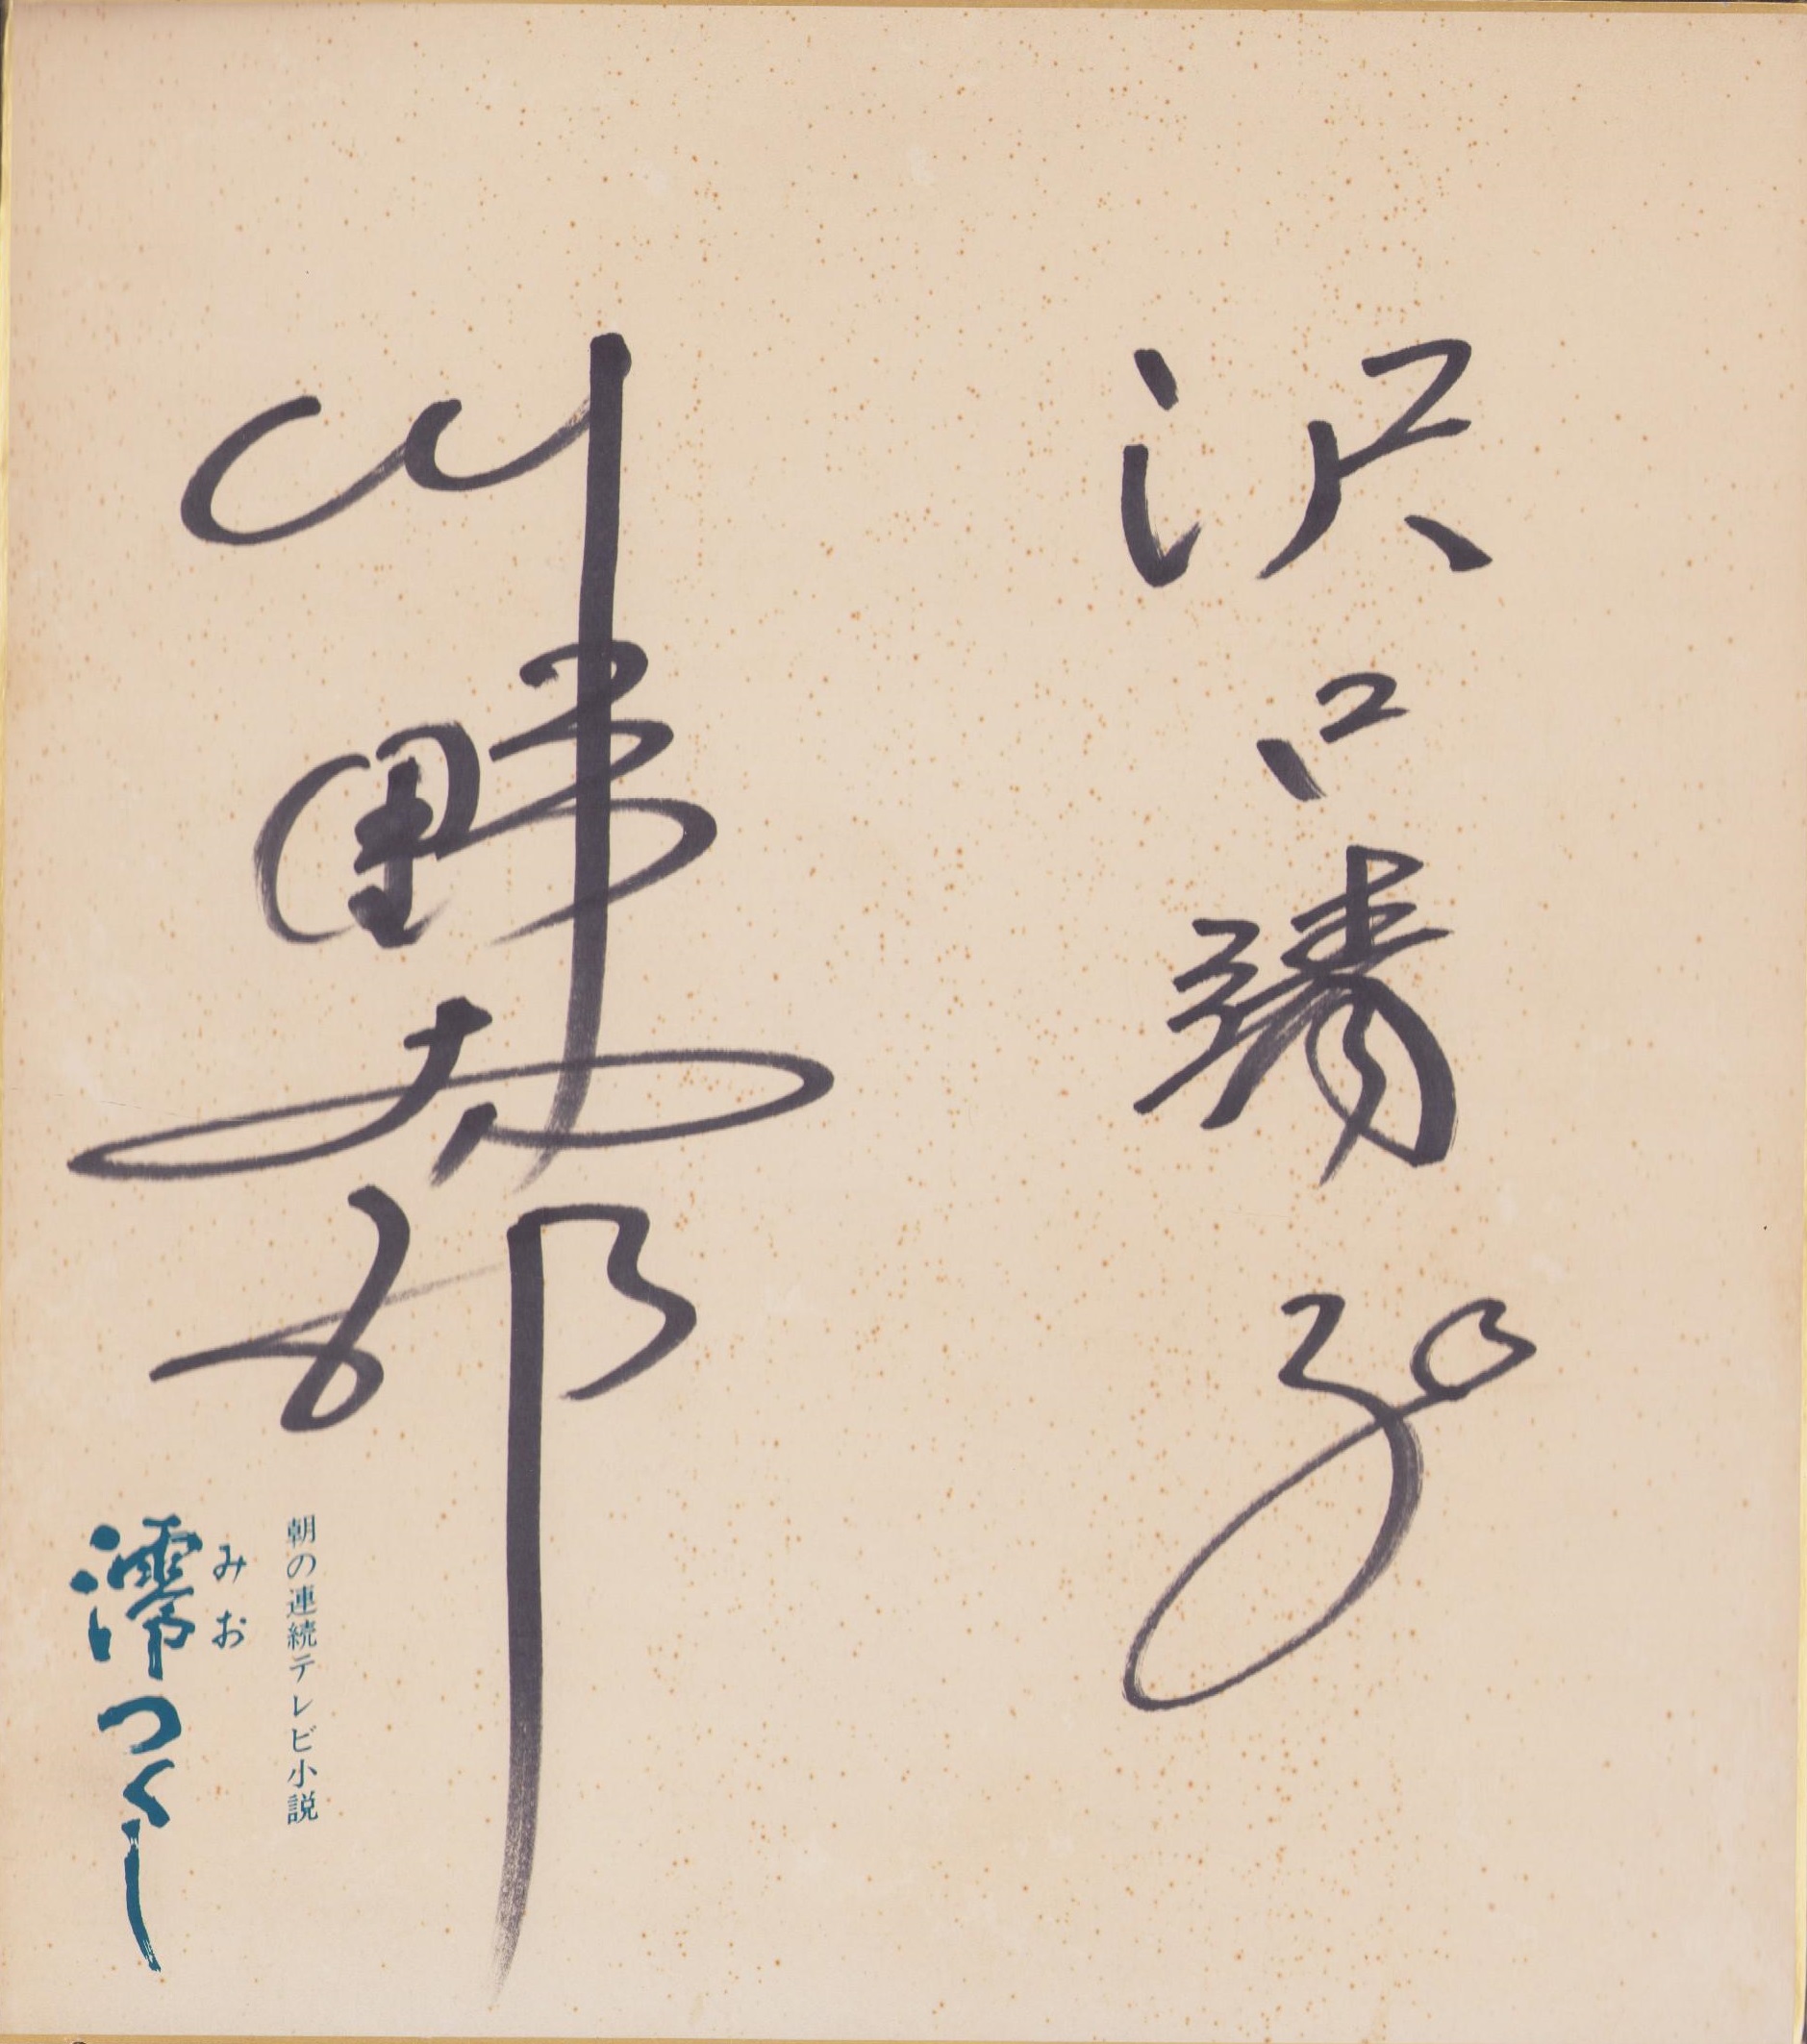 沢口靖子
川野太郎
朝の連続テレビ小説
みお
澪つくし